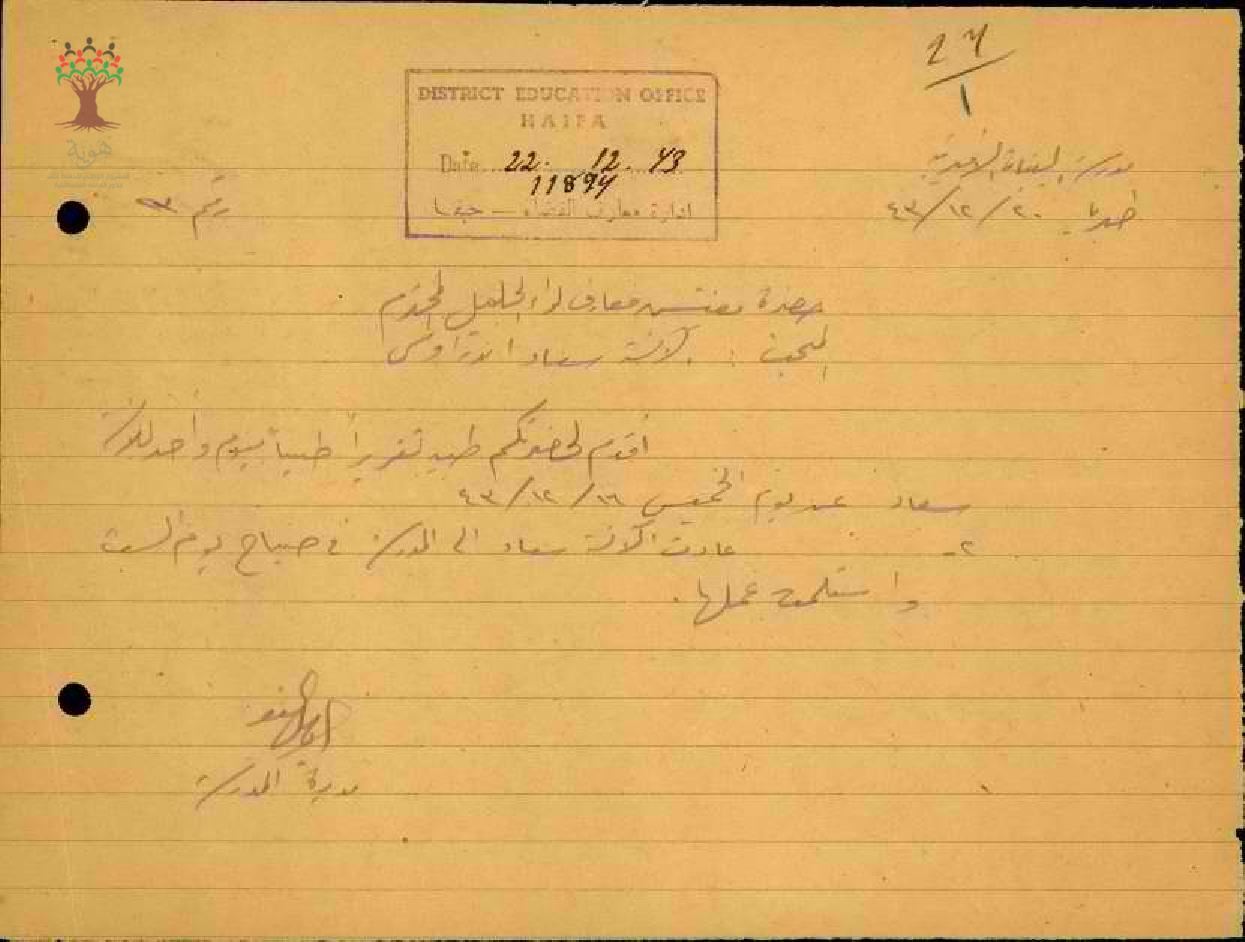 27
1
DISTRICT EDUCATION OFFICE
HAIFA
Date 22. 12. 43
11894
ادارة معارف القضاء — حيفا
مدرسة البنات الاميرية
طبريا ٢٠/١٢/٤٣
رقم ٣
هوية
حضرة مفتش معارف لواء الجليل المحترم
البحث : الآنسة سعاد اندراوس
أقدم لحضرتكم طيه تقريراً طبياً بيوم واحد للآنسة
سعاد عن يوم الخميس ١٦/١٢/٤٣
٢- عادت الآنسة سعاد الى المدرسة في صباح يوم السبت
واستلمت عملها.
مديرة المدرسة